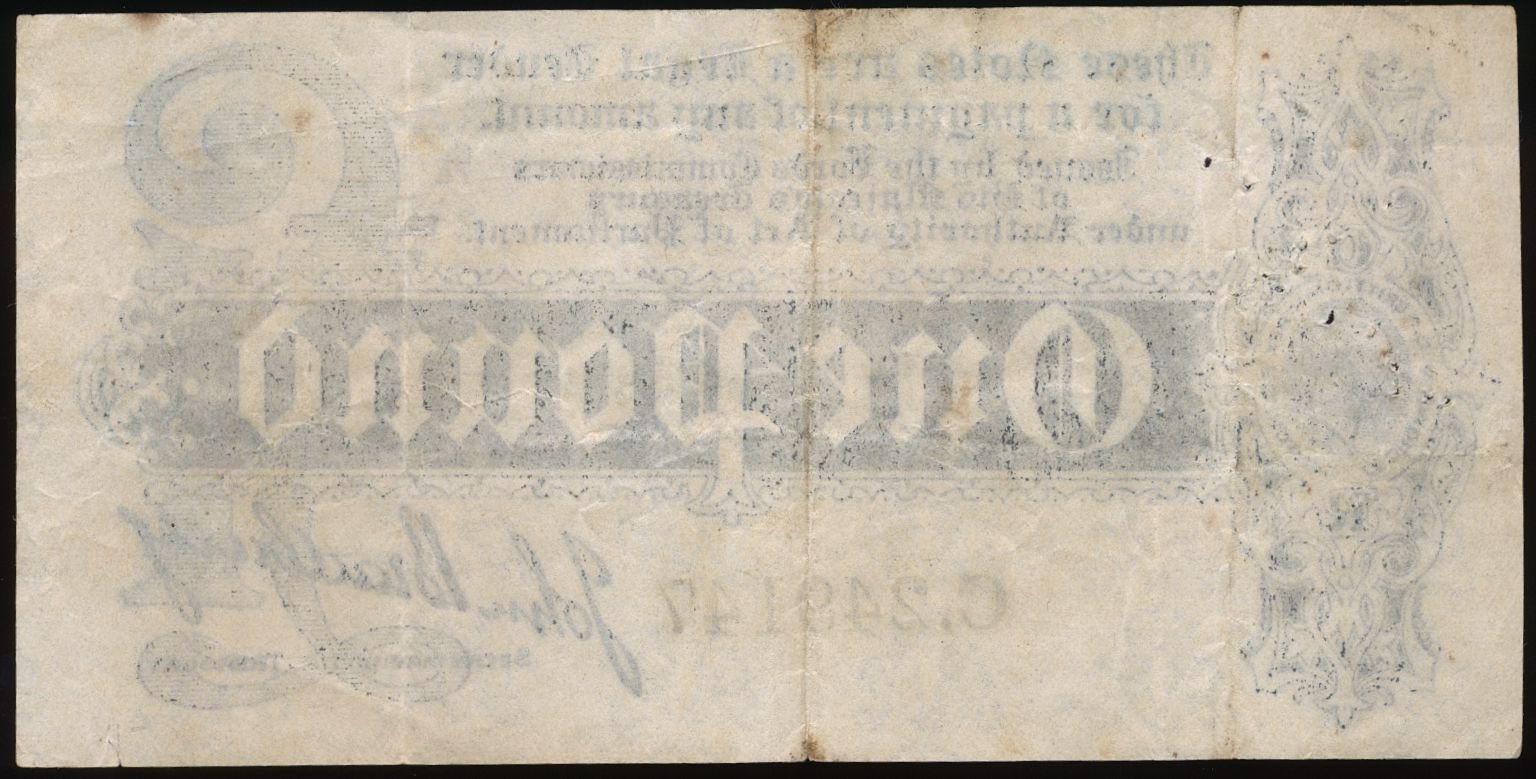 These Notes are a Legal Tender
for a payment of any amount.
Issued by the Lords Commissioners
of His Majesty's Treasury
under Authority of Act of Parliament.
One Pound
C.249147
John Bradbury
Secretary to the Treasury